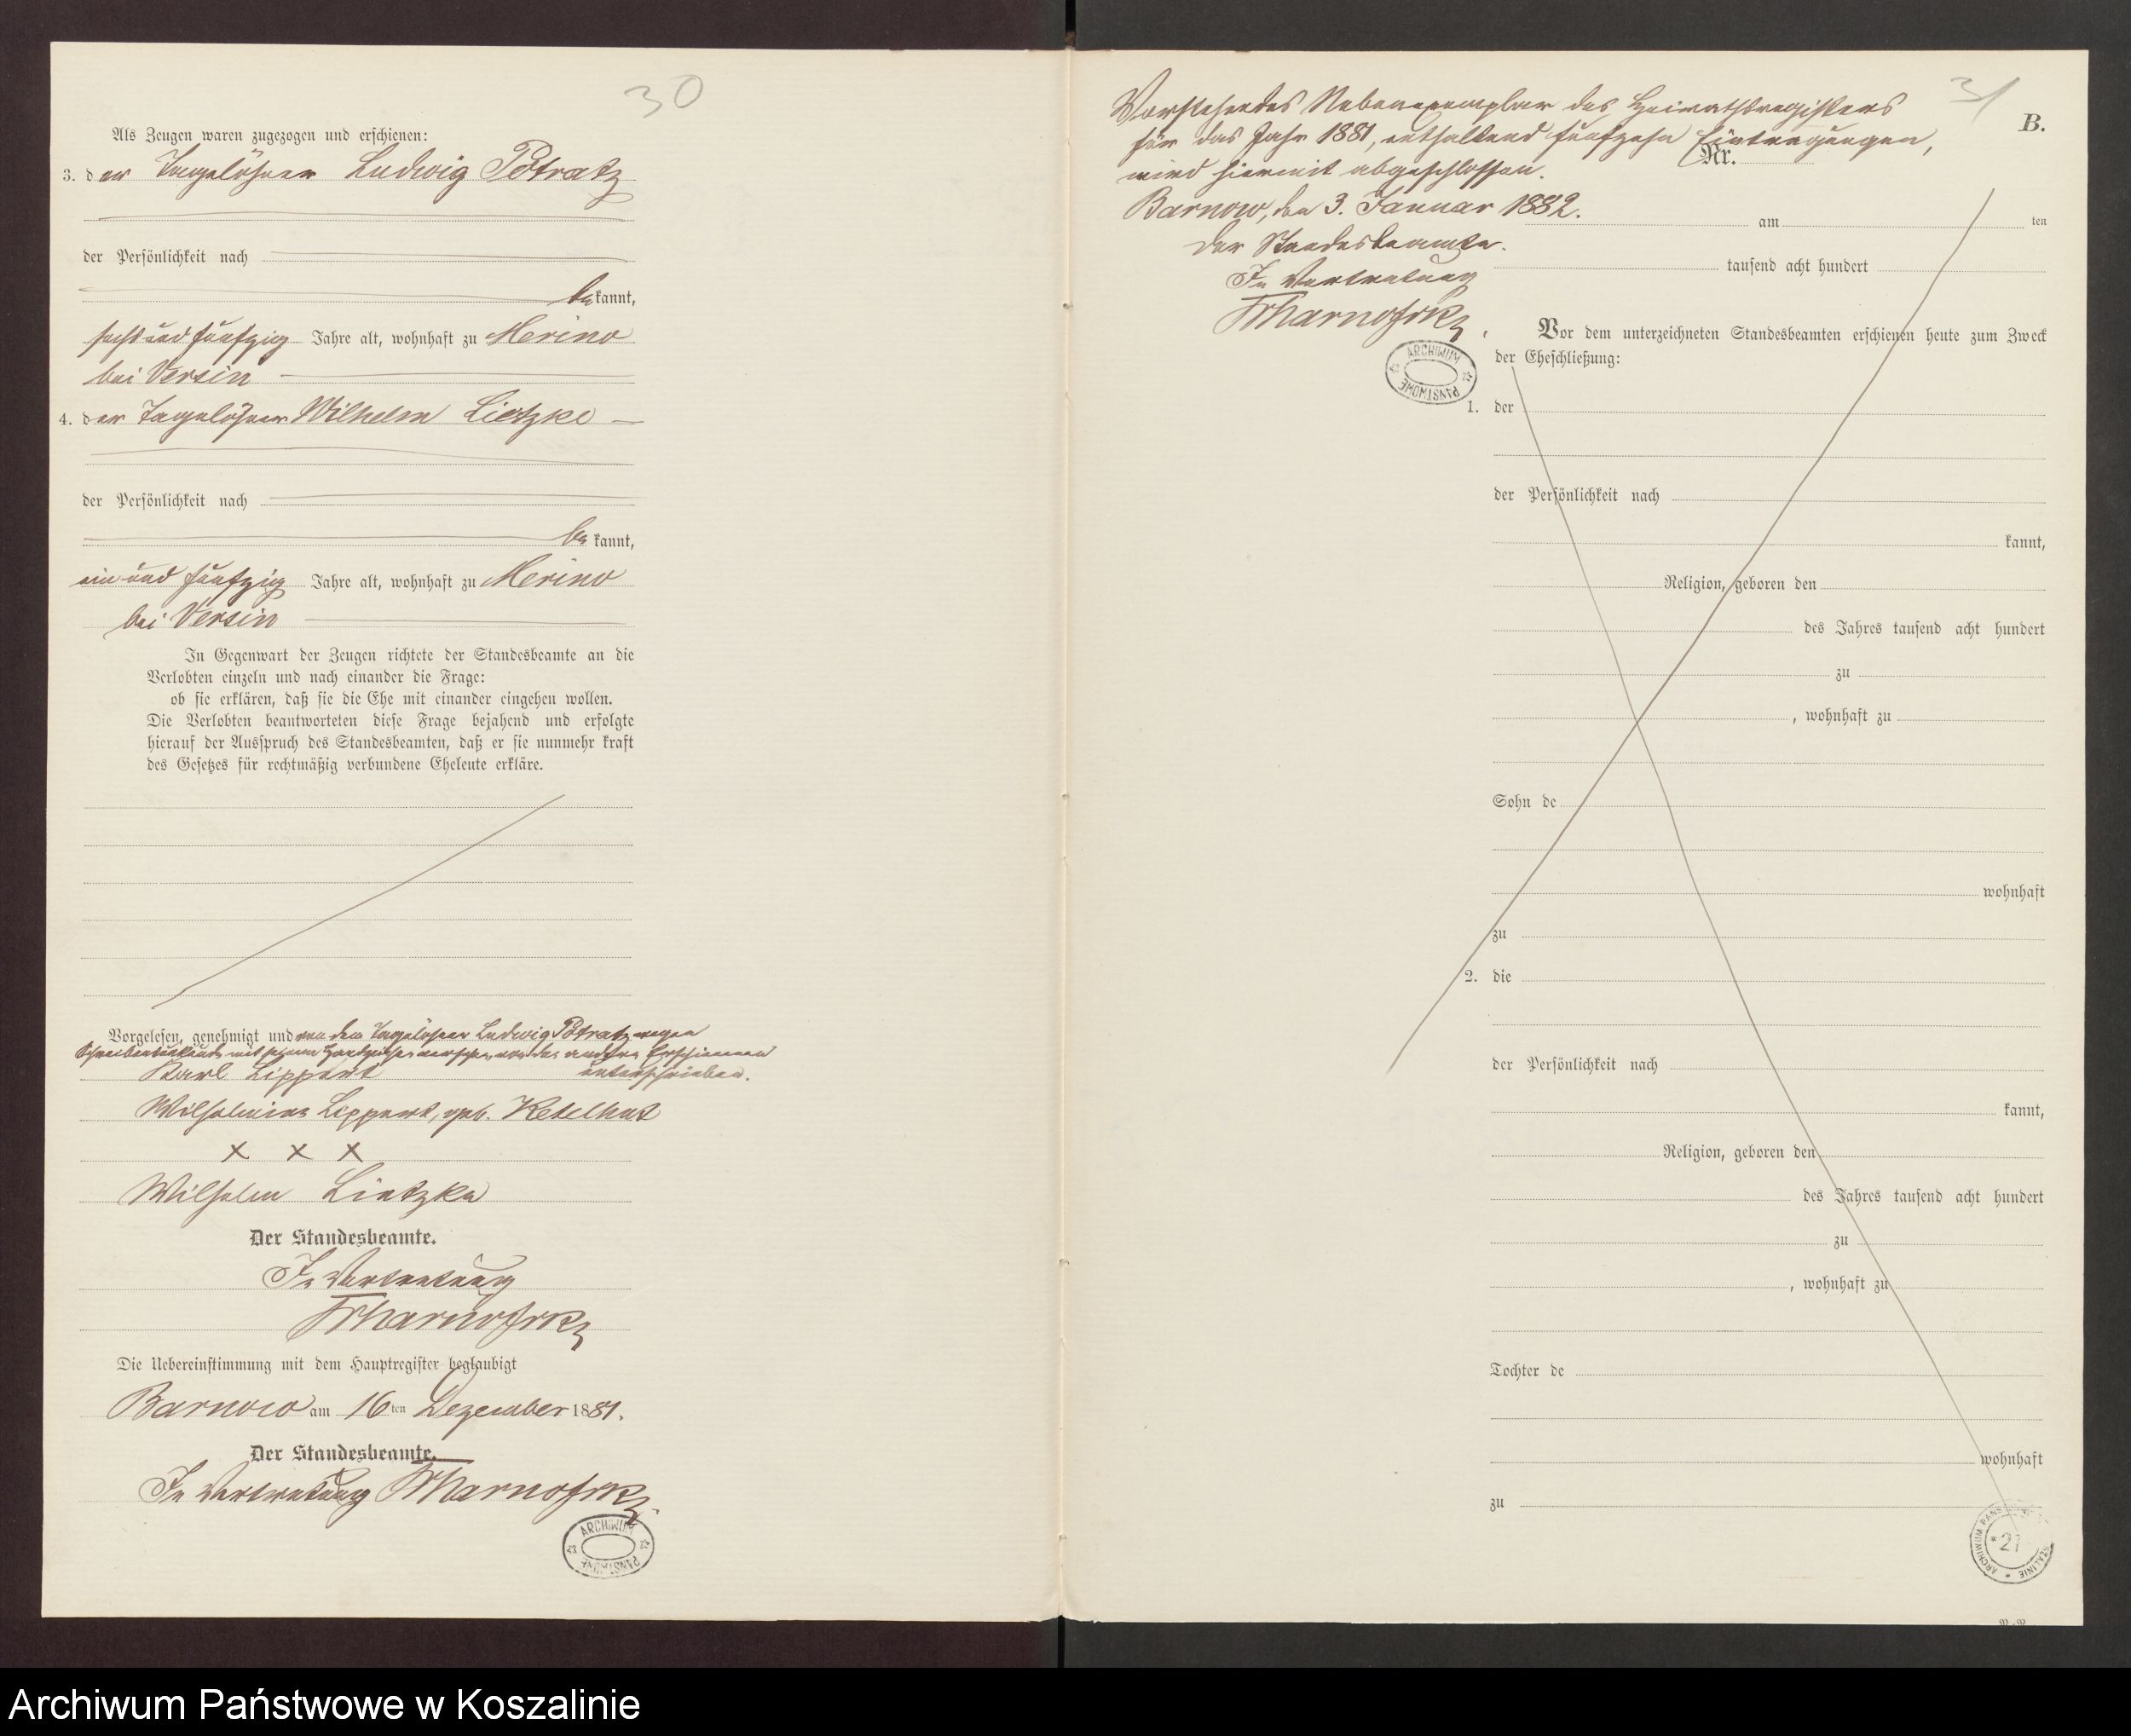 30
Als Zeugen waren zugezogen und erschienen:
3. der Tagelöhner Ludwig Potratz
der Persönlichkeit nach
bekannt,
sechs und fünfzig Jahre alt, wohnhaft zu Merino
bei Versin
4. der Tagelöhner Wilhelm Lietzke
der Persönlichkeit nach
bekannt,
ein und fünfzig Jahre alt, wohnhaft zu Merino
bei Versin
In Gegenwart der Zeugen richtete der Standesbeamte an die
Verlobten einzeln und nach einander die Frage:
ob sie erklären, daß sie die Ehe mit einander eingehen wollen.
Die Verlobten beantworteten diese Frage bejahend und erfolgte
hierauf der Ausspruch des Standesbeamten, daß er sie nunmehr kraft
des Gesetzes für rechtmäßig verbundene Eheleute erkläre.
Vorgelesen, genehmigt und von dem Tagelöhner Ludwig Potratz wegen
Schreibensunkunde mit seinem Handzeichen versehen, von den anderen Erschienenen
Karl Lippert unterschrieben.
Wilhelmine Lippert, geb. Ketelhut
x x x
Wilhelm Lietzke
Der Standesbeamte.
In Vertretung
Die Uebereinstimmung mit dem Hauptregister beglaubigt
Barnow am 16ten Dezember 1881.
Der Standesbeamte.
In Vertretung
ARCHIWUM PAŃSTWOWE
31
Vorstehendes Nebenexemplar des Heirathsregisters
für das Jahr 1881, enthaltend fünfzehn Eintragungen,
wird hiermit abgeschlossen.
Barnow, den 3. Januar 1882.
Der Standesbeamte.
In Vertretung
ARCHIWUM PAŃSTWOWE
B.
Nr.
am ten
tausend acht hundert
Vor dem unterzeichneten Standesbeamten erschienen heute zum Zweck
der Eheschließung:
1. der
der Persönlichkeit nach
kannt,
Religion, geboren den
des Jahres tausend acht hundert
zu
, wohnhaft zu
Sohn de
wohnhaft
zu
2. die
der Persönlichkeit nach
kannt,
Religion, geboren den
des Jahres tausend acht hundert
zu
, wohnhaft zu
Tochter de
wohnhaft
zu
Archiwum Państwowe w Koszalinie